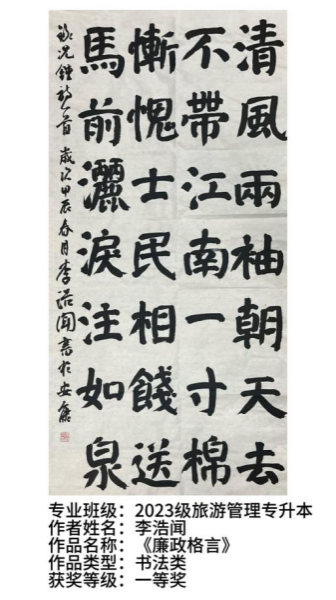 清風兩袖朝天去
不帶江南一寸棉
慚愧士民相餞送
馬前灑淚注如泉
錄況鍾詩一首 歲次甲辰春月李浩聞書於安康
专业班级：2023级旅游管理专升本
作者姓名：李浩闻
作品名称：《廉政格言》
作品类型：书法类
获奖等级：一等奖